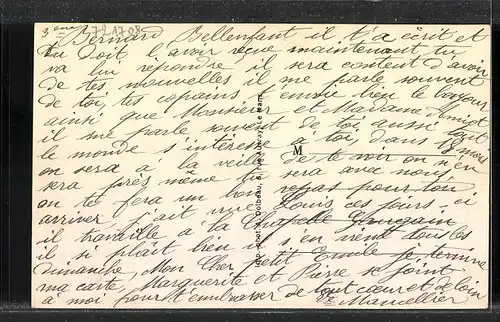 3eme 721708
Bernard Bellenfant il t'a écrit et
tu doit l'avoir reçue maintenant tu
va lui répondre il sera content d'avoir
de tes nouvelles il me parle souvent
de toi, tes copains t'envoie bien le bonjour
ainsi que Monsieur et Madame
il me parle souvent de toi, aussi tout
le monde s'intéresse a toi, dans 18 mois
M
on sera à la veille de te voir on n'en
sera près même tu sera avec nous,
on te fera un bon repas pour ton
arriver j'ait vue Louis ces jours, ci
il travaille a la Chapelle
il si plait bien il s'en vient tous les
dimanche, Mon Cher petit Emile je termine
ma carte, Marguerite et Pierre se joint
à moi pour t'embrasser de tout cœur et de loin
Mancellier
Dolbeau, Le Mans